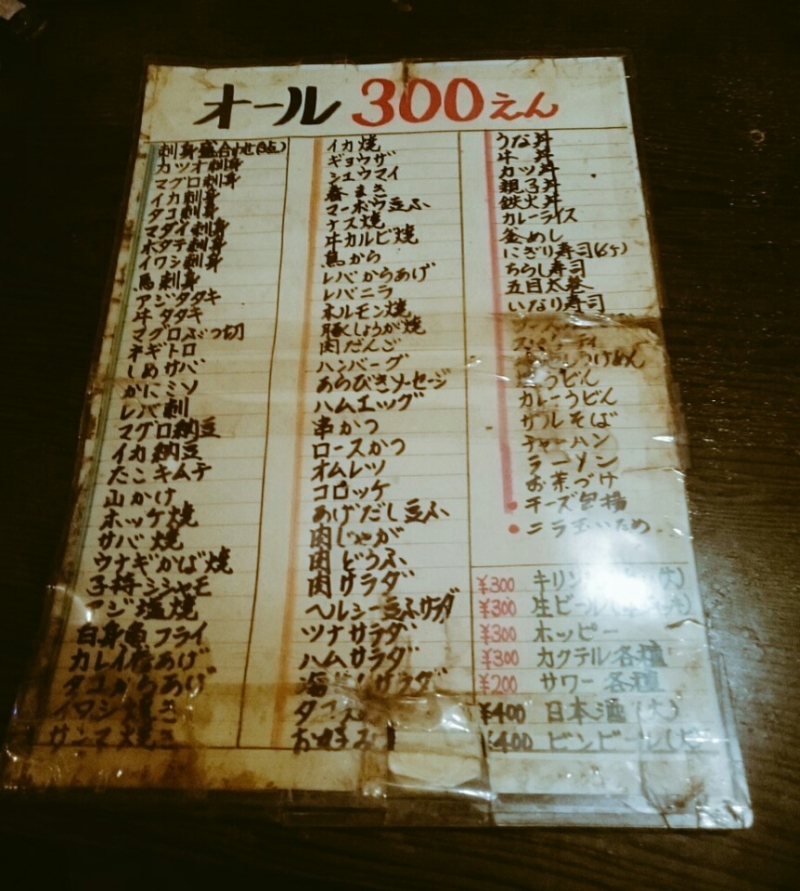 オール 300えん
刺身盛合わせ
カツオ刺身
マグロ刺身
イカ刺身
タコ刺身
マダイ刺身
ホタテ刺身
イワシ刺身
馬刺身
アジタタキ
牛タタキ
マグロぶつ切
ネギトロ
しめサバ
かにミソ
レバ刺
マグロ納豆
イカ納豆
たこキムチ
山かけ
ホッケ焼
サバ焼
ウナギかば焼
子持シシャモ
アジ塩焼
白身魚フライ
カレイ揚あげ
タコからあげ
イワシ焼き
サンマ焼き
イカ焼
ギョウザ
シュウマイ
春まき
マーボウ豆ふ
ナス焼
牛カルビ焼
鳥から
レバからあげ
レバニラ
ホルモン焼
豚しょうが焼
肉だんご
ハンバーグ
あらびきソーセージ
ハムエッグ
串かつ
ロースかつ
オムレツ
コロッケ
あげだし豆ふ
肉じゃが
肉どうふ
肉サラダ
ヘルシー豆ふサラダ
ツナサラダ
ハムサラダ
サラダ
お好み
うな丼
牛丼
カツ丼
親子丼
鉄火丼
カレーライス
釜めし
にぎり寿司(6ケ)
ちらし寿司
五目太巻
いなり寿司
つけめん
うどん
カレーうどん
ザルそば
チャーハン
ラーメン
お茶づけ
チーズ包揚
ニラ玉いため
¥300 キリン
¥300 生ビール
¥300 ホッピー
¥300 カクテル各種
¥200 サワー各種
¥400 日本酒(大)
¥400 ビンビール(大